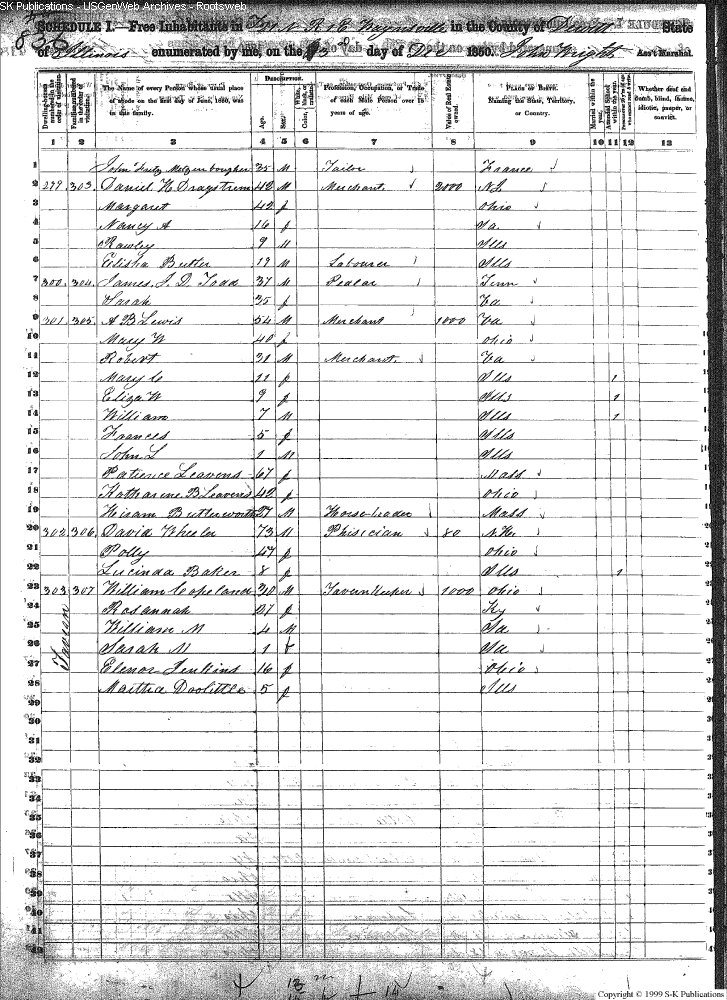 SK Publications - USGenWeb Archives - Rootsweb
SCHEDULE I.—Free Inhabitants in Waynsville in the County of Dewitt State
of Illinois enumerated by me, on the day of 1850. John Wright Ass't Marshal.
Dwelling-houses numbered in the order of visitation. Families numbered in the order of visitation. The Name of every Person whose usual place of abode on the first day of June, 1850, was in this family. DESCRIPTION. Age. Sex. Color, White, black, or mulatto. Profession, Occupation, or Trade of each Male Person over 15 years of age. Value of Real Estate owned. PLACE OF BIRTH. Naming the State, Territory, or Country. Married within the year. Attended School within the year. Whether deaf and dumb, blind, insane, idiotic, pauper, or convict.
1 2 3 4 5 6 7 8 9 10 11 12 13
1 John Fritz Metzenbougher 35 M Tailor France
2 299 303 Daniel H Dragstrem 42 M Merchant 2000 N.J.
3 Margaret 42 f Ohio
4 Nancy A 16 f Va.
5 Rawley 9 M Ills
6 Elisha Butler 19 M Labourer Ills
7 300 304 James J. D. Todd 37 M Pedlar Tenn
8 Sarah 35 f Va
9 301 305 A B Lewis 54 M Merchant 1000 Va
10 Mary W 40 f Ohio
11 Robert 31 M Merchant. Va
12 Mary C 11 f Ills 1
13 Eliza W 9 f Ills 1
14 William 7 M Ills 1
15 Frances 5 f Ills
16 John L 1 M Ills
17 Patience Leavens 67 f Mass
18 Katharine B Leavens 42 f Ohio
19 Hiram Butterworth 27 M Horse trader Mass
20 302 306 David Wheeler 73 M Phisician 80 N.H.
21 Polly 47 f Ohio
22 Lucinda Baker 8 f Ills 1
23 303 307 William Copeland 30 M Tavern Keeper 1000 Ohio
24 Tavern Rosannah 27 f Ky
25 William M 4 M Ia
26 Sarah M 1 f Ia
27 Elenor Jenkins 16 f Ohio
28 Martha Doolittle 5 f Ills
29
30
31
32
33
34
35
36
37
38
39
40
41
42
Copyright © 1999 S-K Publications